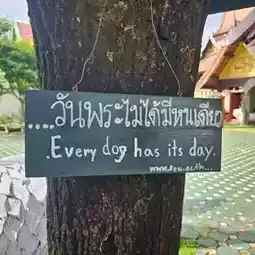 ....วันพระไม่ได้มีหนเดียว
.Every dog has its day.